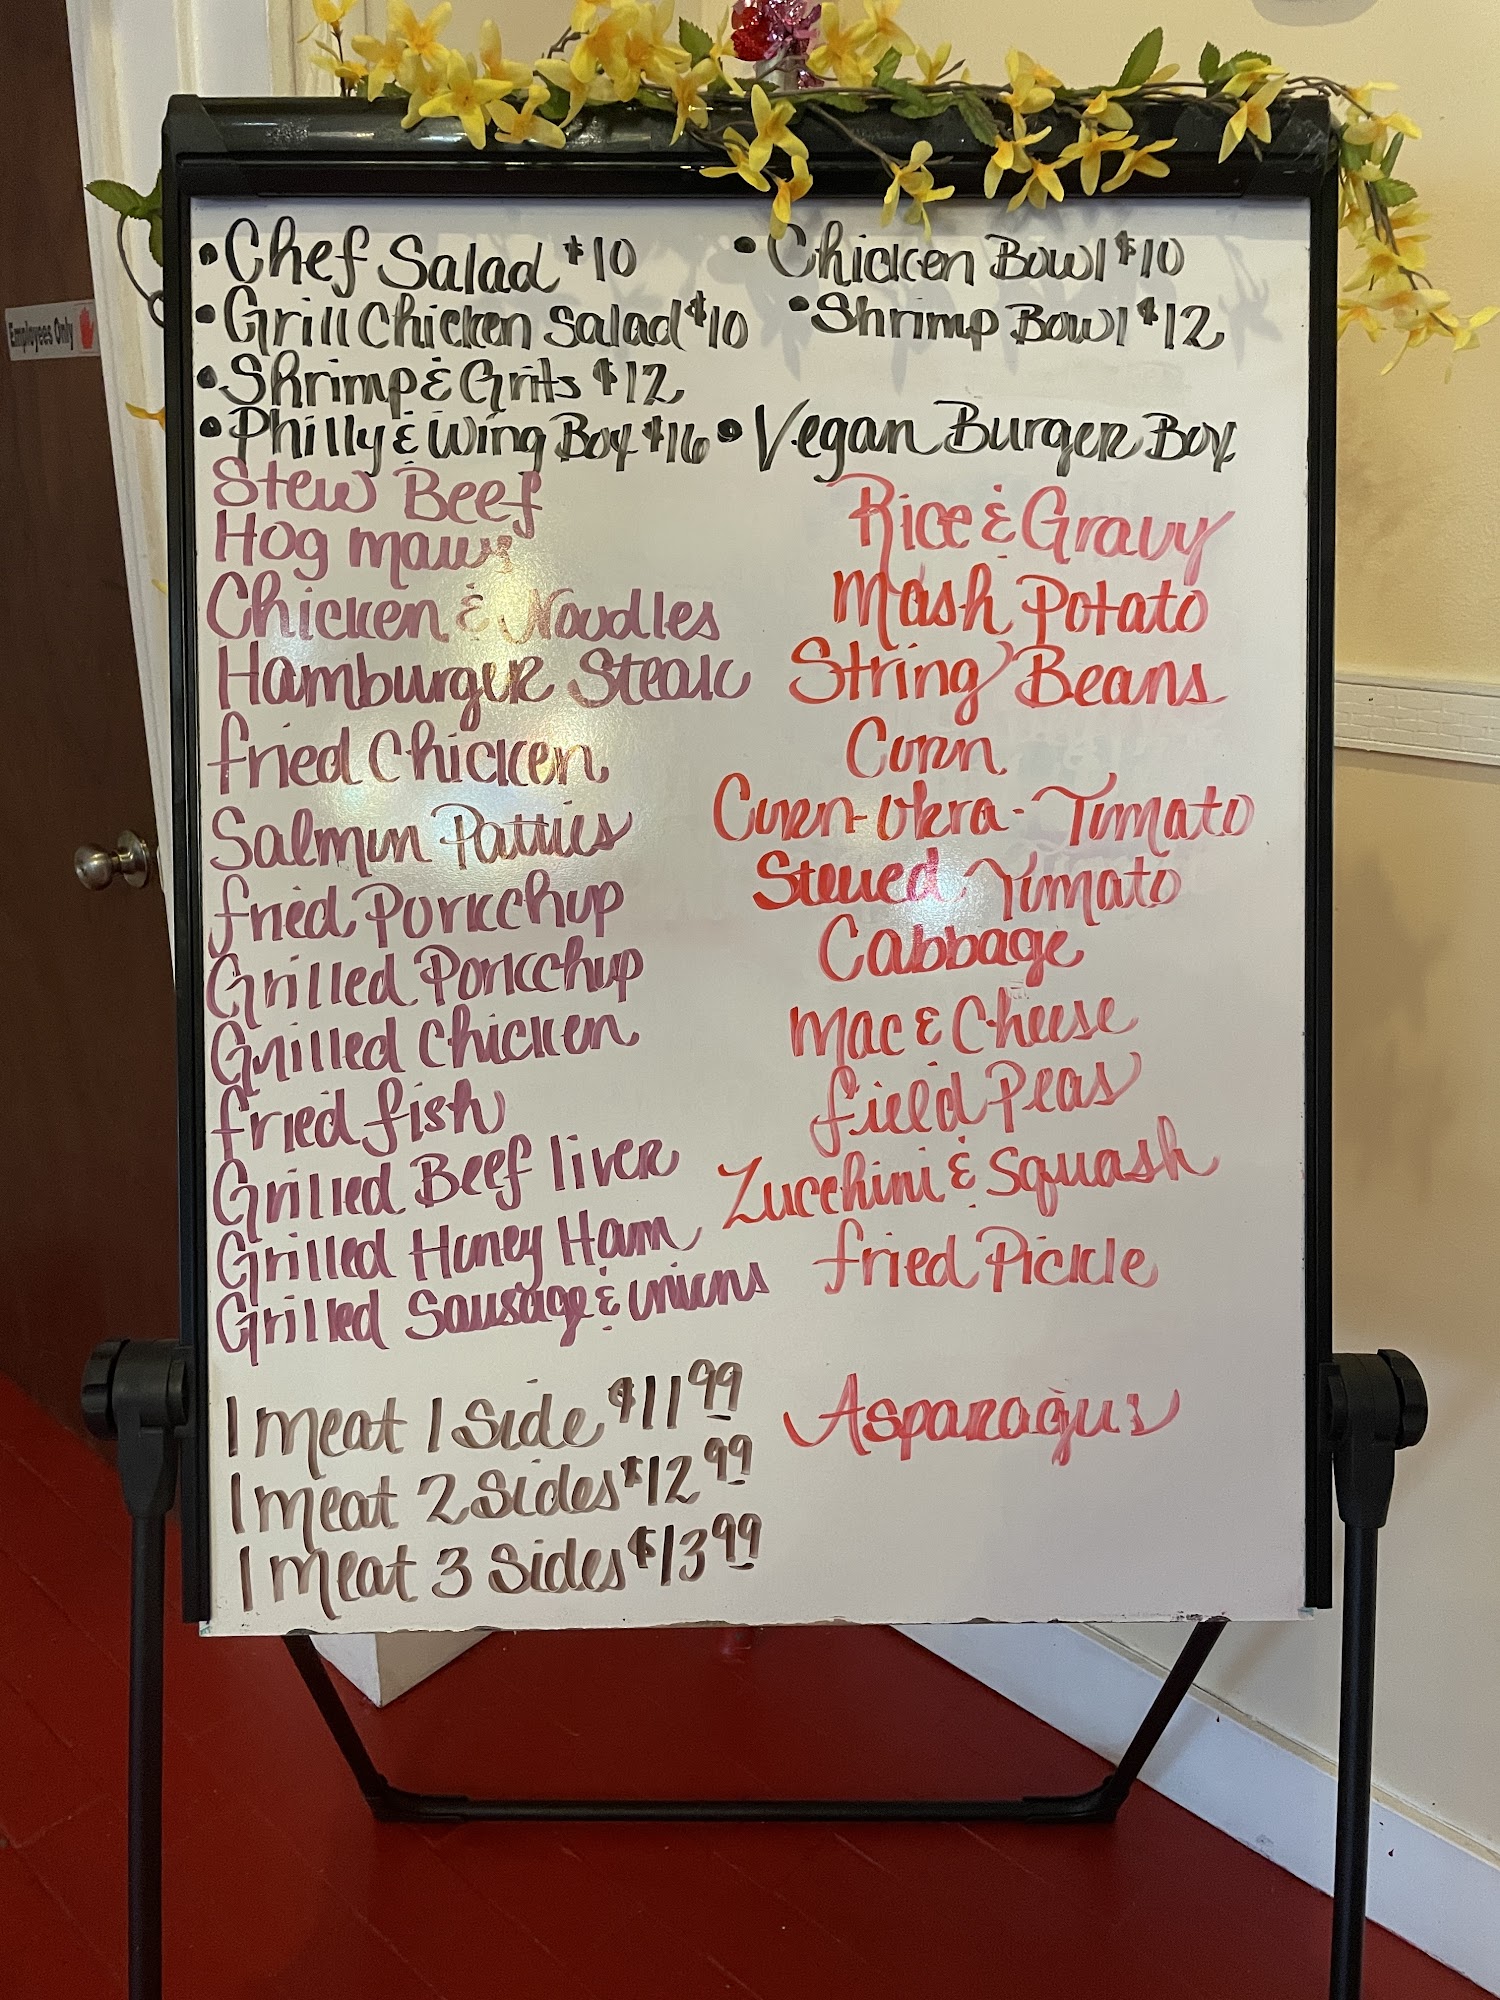 Employees Only
• Chef Salad $10
• Grill Chicken Salad $10
• Shrimp & Grits $12
• Philly & Wing Box $16
• Chicken Bowl $10
• Shrimp Bowl $12
• Vegan Burger Box
Stew Beef
Hog maws
Chicken & Noodles
Hamburger Steak
fried Chicken
Salmon Patties
fried Porkchop
Grilled Porkchop
Grilled Chicken
fried fish
Grilled Beef liver
Grilled Honey Ham
Grilled Sausage & onions
1 meat 1 Side $11.99
1 meat 2 Sides $12.99
1 meat 3 Sides $13.99
Rice & Gravy
Mash Potato
String Beans
Corn
Corn-Okra-Tomato
Stewed Tomato
Cabbage
Mac & Cheese
field Peas
Zucchini & Squash
fried Pickle
Asparagus